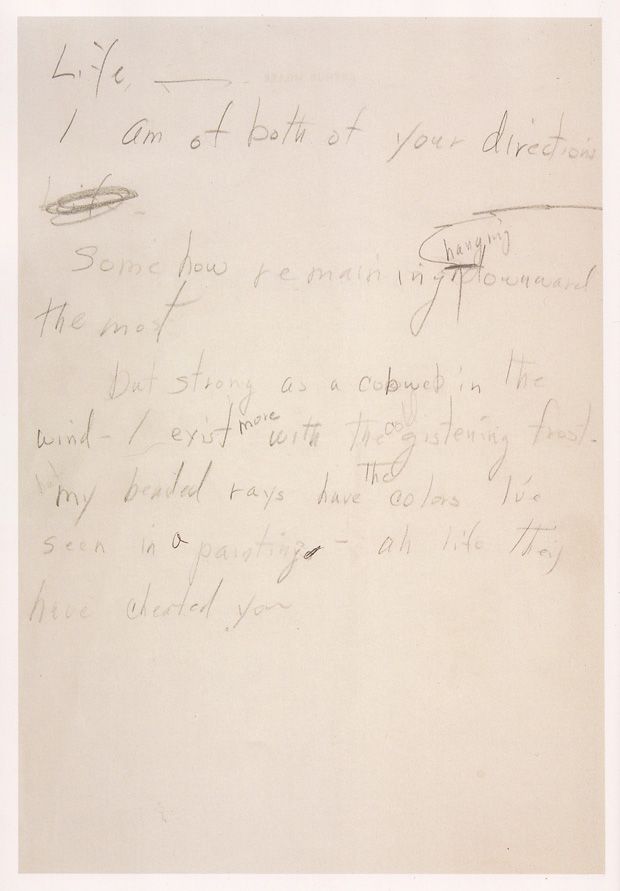 Life, ———
I am of both of your directions
Life
hanging
Somehow remaining downward
the most
But strong as a cobweb in the
wind – I exist more with the cold gistening frost.
but my beaded rays have the colors I've
seen in a painting – ah life they
have cheated you